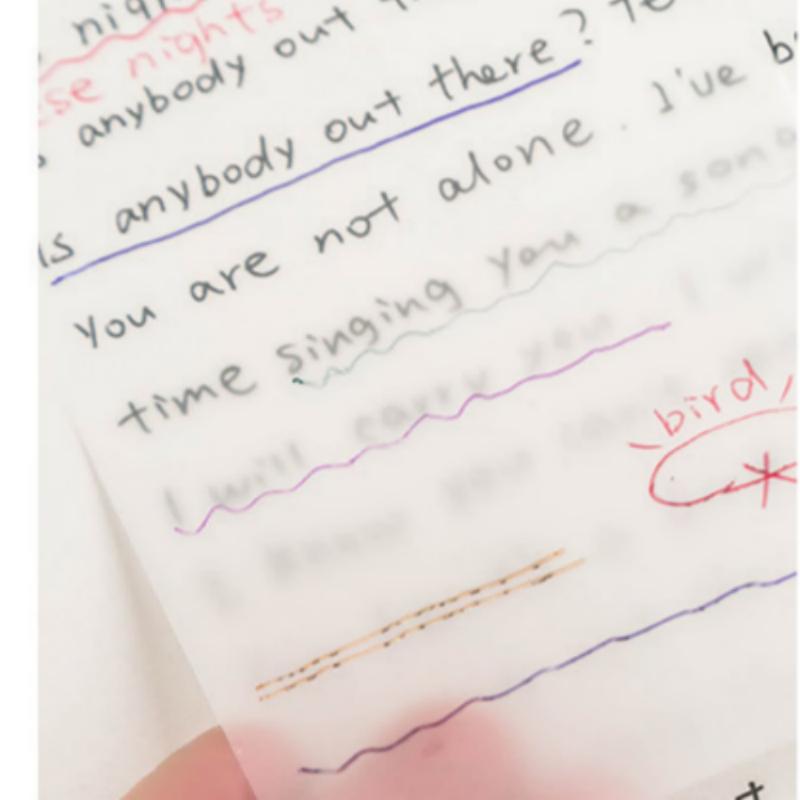 these nights
anybody out
Is anybody out there?
You are not alone. I've
time singing you a song
I will carry you. I
bird,
I know you can't